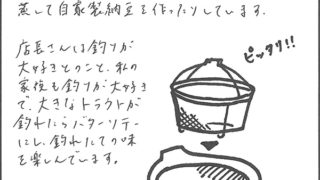 蒸して自家製納豆を作ったりしています.
店長さんは釣りが
大好きとのこと、私の
家族も釣りが大好き
で、大きなトラウトが
釣れたらバターソテー
にし、釣れたての味
を楽しんでいます。
ピッタリ!!